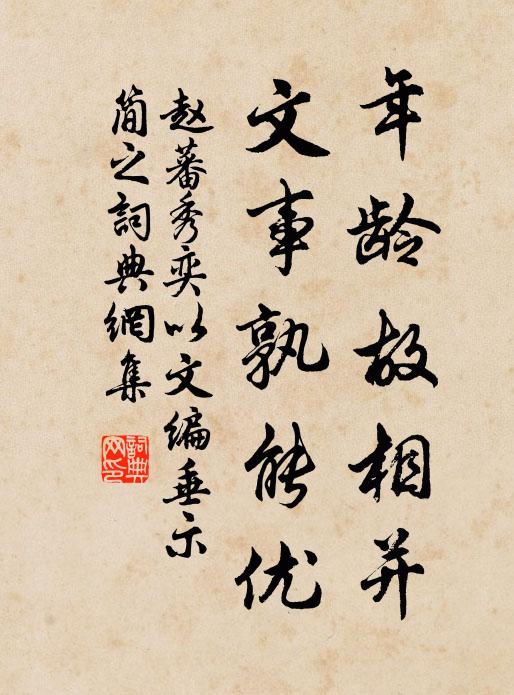 年龄故相并
文事孰能优
赵蕃秀奕以文编垂示
简之詞典網集
詞典网印